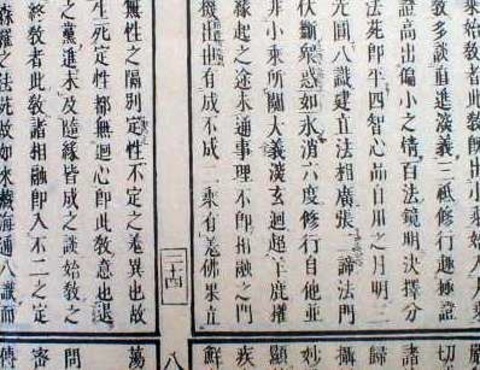 乘始敎者此敎既出小乘始入大乘
敎多談直進淺義三祇修行趣極證
證高出偏小之情百法鏡明決擇分
法苑卽平四智心品日用之月明二
光圓八識建立法相廣張二諦法門
伏斷衆惑如氷消六度修行自他並
非小乘所闚大義淺玄迴超羊鹿權
緣起之途未通事理不卽相融之門
機出出有成不成二乘有羗佛果立
二十四
無性之隔別定性不定之差異也故
生死定性都無迴心卽此敎意也退
之薰進未及隨緣皆成之談始敎之
終敎者此敎諸相融卽入不二之定
森羅之法苑故如來藏海通八識而
切
諸
歸
攝
妙
顯
疾
鮮
八
蕩
問
密
傳